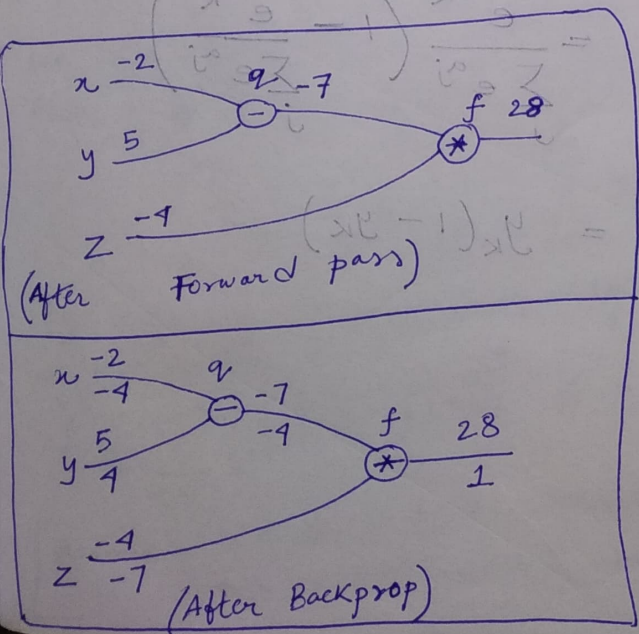 x -2
q -7
f 28
y 5
z -4
(After Forward pass)
x -2 -4
q
-7 -4
f
28 1
y 5 4
z -4 -7
(After Backprop)